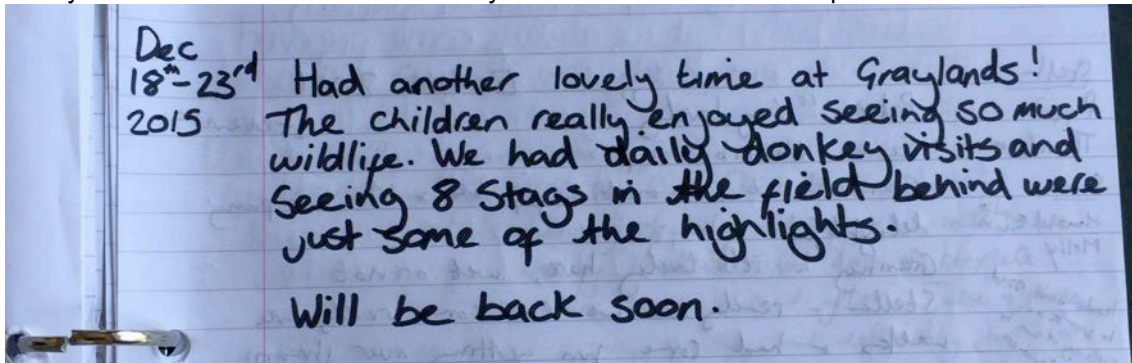 Dec
18th-23rd Had another lovely time at Graylands!
2015 The children really enjoyed seeing so much
wildlife. We had daily donkey visits and
Seeing 8 Stags in the field behind were
just some of the highlights.
Will be back soon.